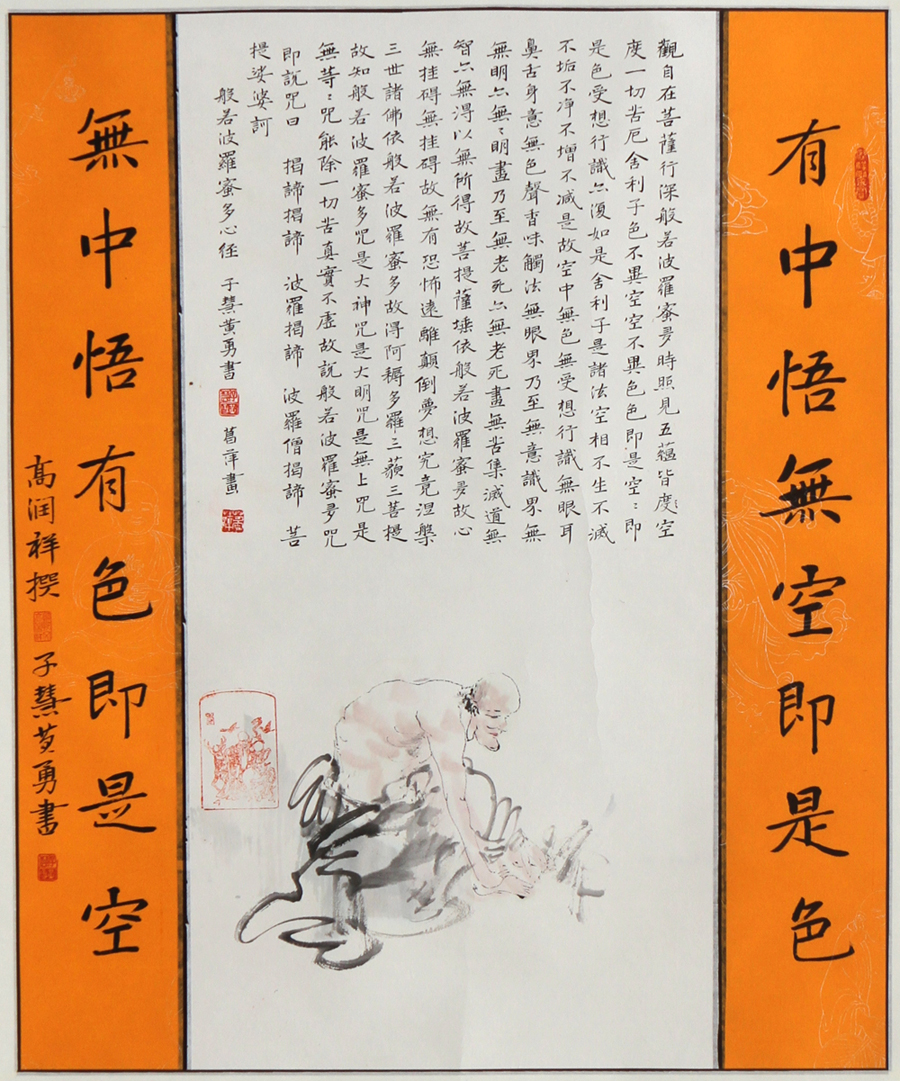 有中悟無空即是色
觀自在菩薩行深般若波羅蜜多時照見五蘊皆度空
度一切苦厄舍利子色不異空空不異色色即是空：即
是色受想行識亦復如是舍利子是諸法空相不生不滅
不垢不淨不增不減是故空中無色無受想行識無眼耳
鼻舌身意無色聲香味觸法無眼界乃至無意識界無
無明亦無：明盡乃至無老死亦無老死盡無苦集滅道無
智亦無得以無所得故菩提薩埵依般若波羅蜜多故心
無挂碍無挂碍故無有恐怖遠離顛倒夢想究竟涅槃
三世諸佛依般若波羅蜜多故得阿耨多羅三藐三菩提
故知般若波羅蜜多咒是大神咒是大明咒是無上咒是
無等：咒能除一切苦真實不虛故説般若波羅蜜多咒
即説咒曰 揭諦揭諦 波羅揭諦 波羅僧揭諦 菩
提娑婆訶
般若波羅蜜多心径 子慧黄勇書 葛萍畫
無中悟有色即是空
高润祥撰 子慧黄勇書